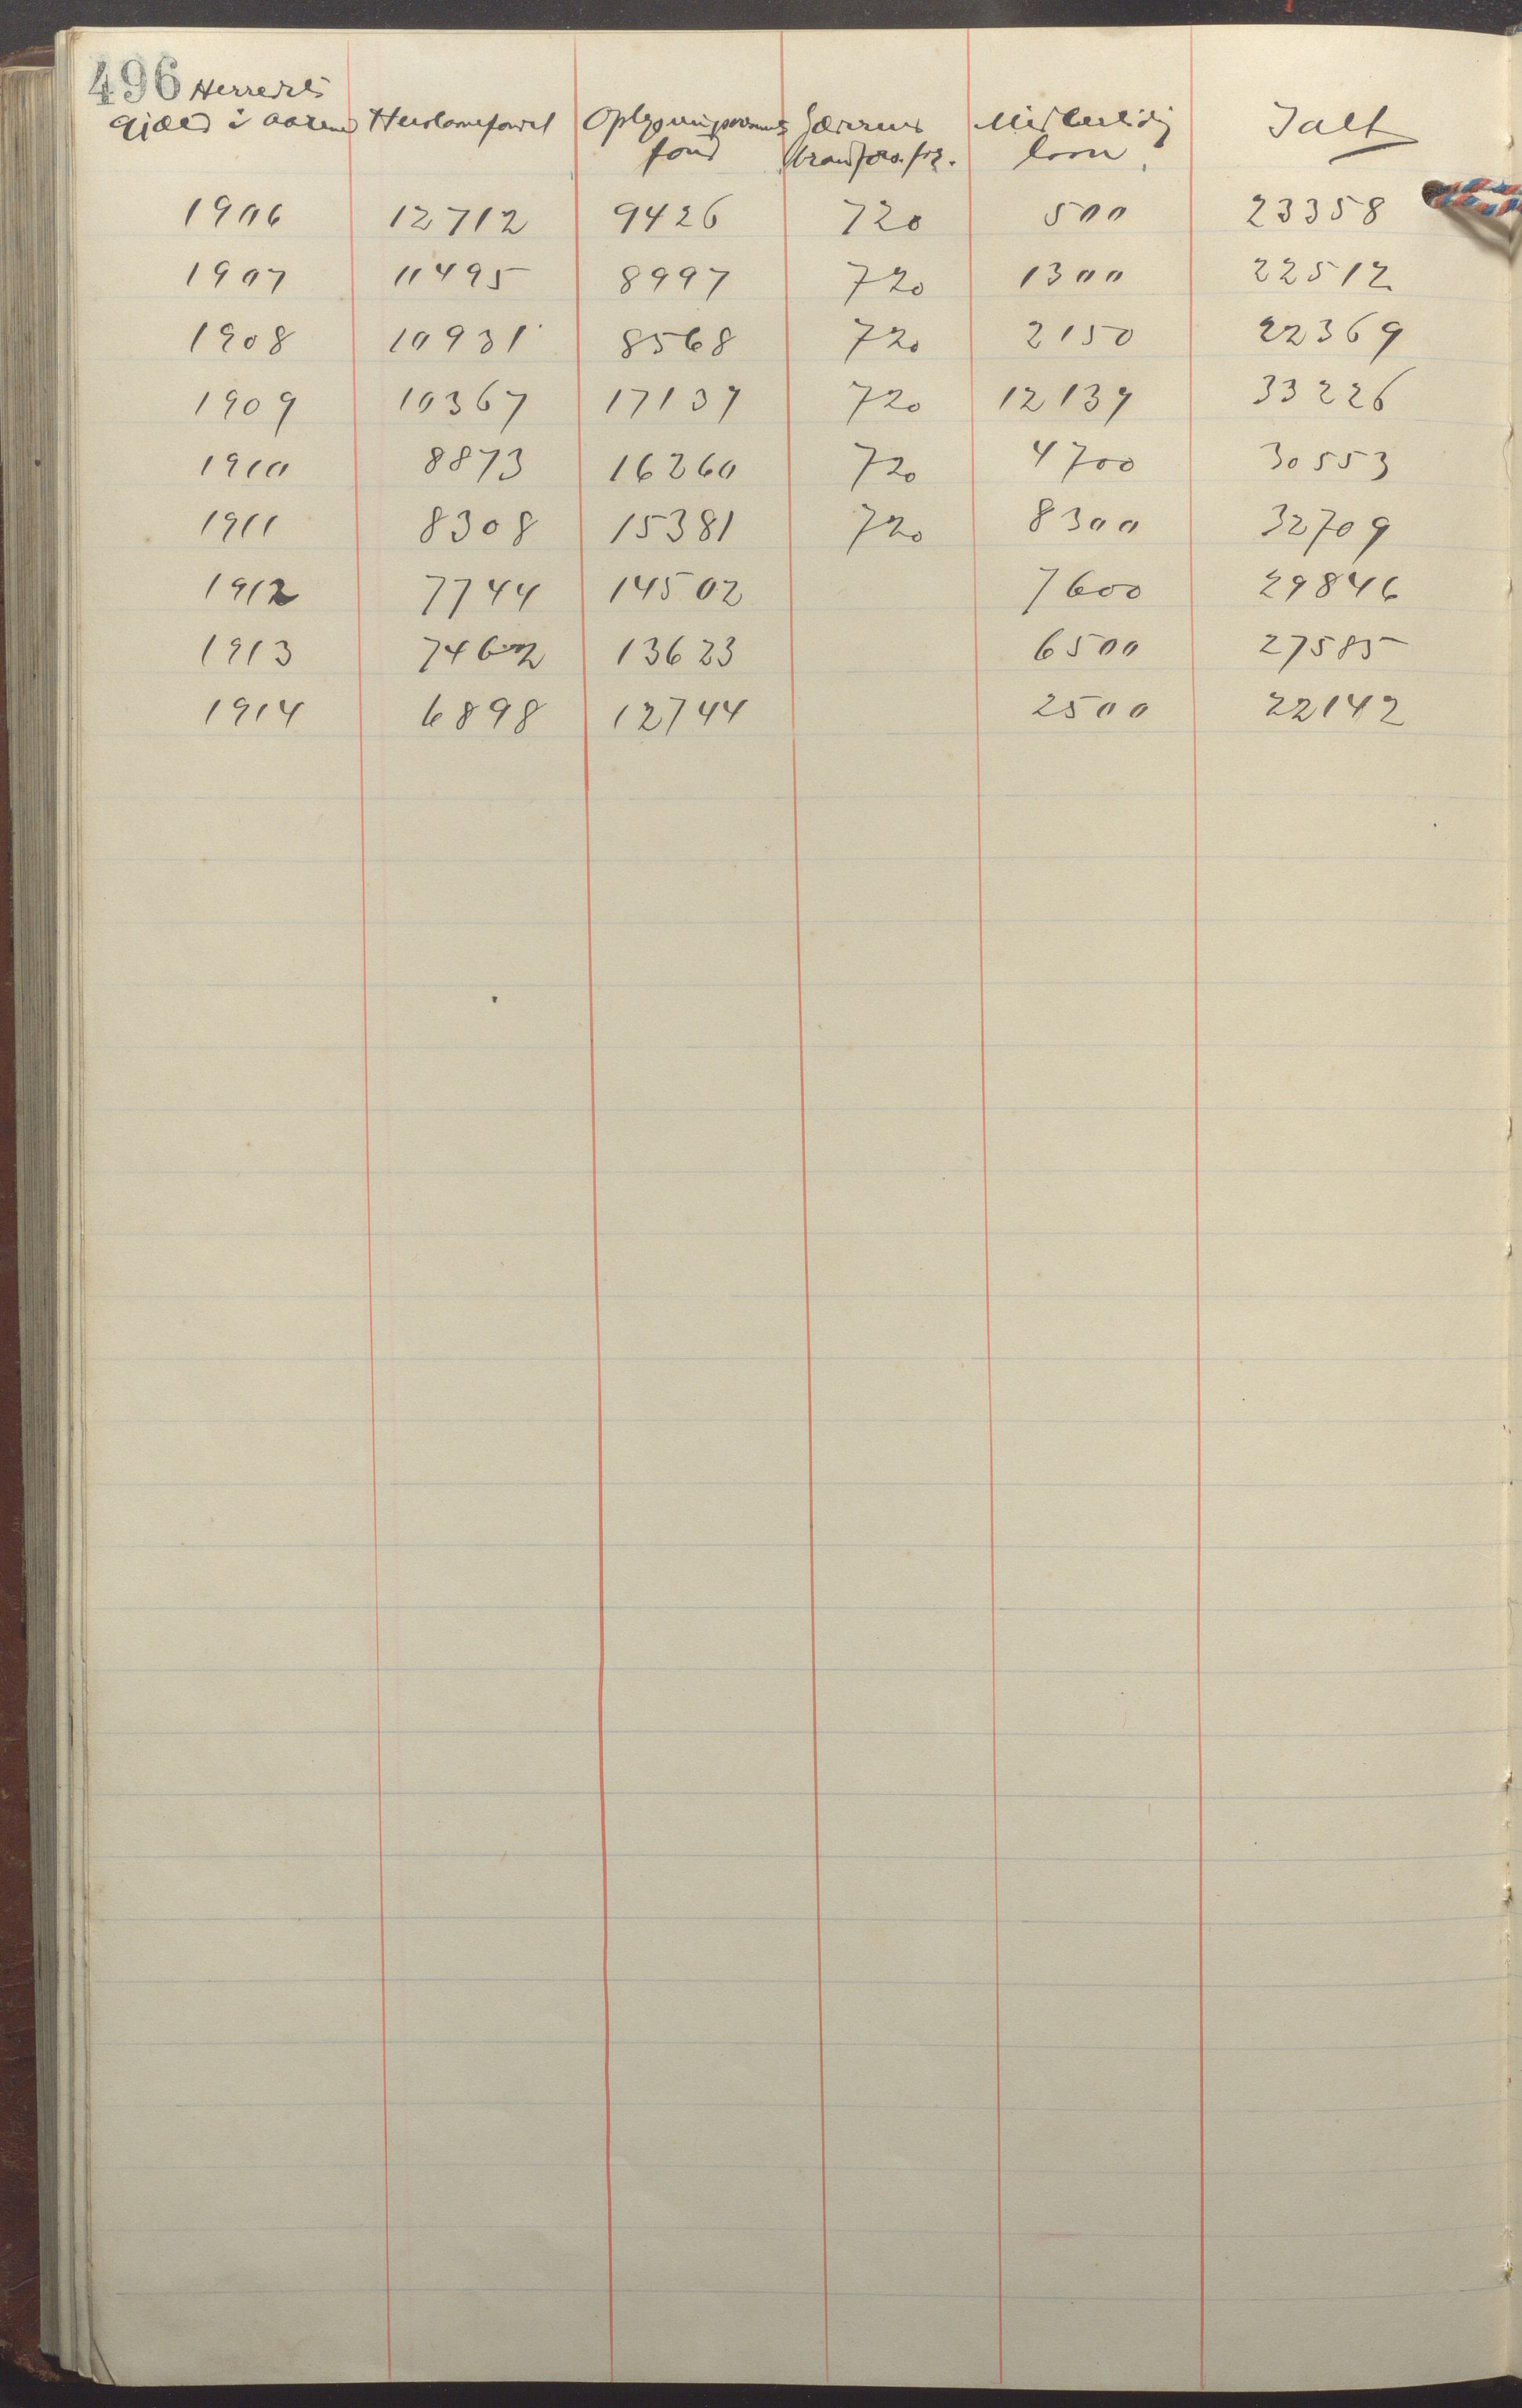 496 Herredets
gjæld i aarene Huslaanefond Oplysningsvæsenets fond Jærens brandfors. for. Midlertidig laan Ialt
1906 12712 9426 720 500 23358
1907 11495 8997 720 1300 22512
1908 10931 8568 720 2150 22369
1909 10367 17139 720 12139 33226
1910 8873 16260 720 4700 30553
1911 8308 15381 720 8300 32709
1912 7744 14502 7600 29846
1913 7462 13623 6500 27585
1914 6898 12744 2500 22142